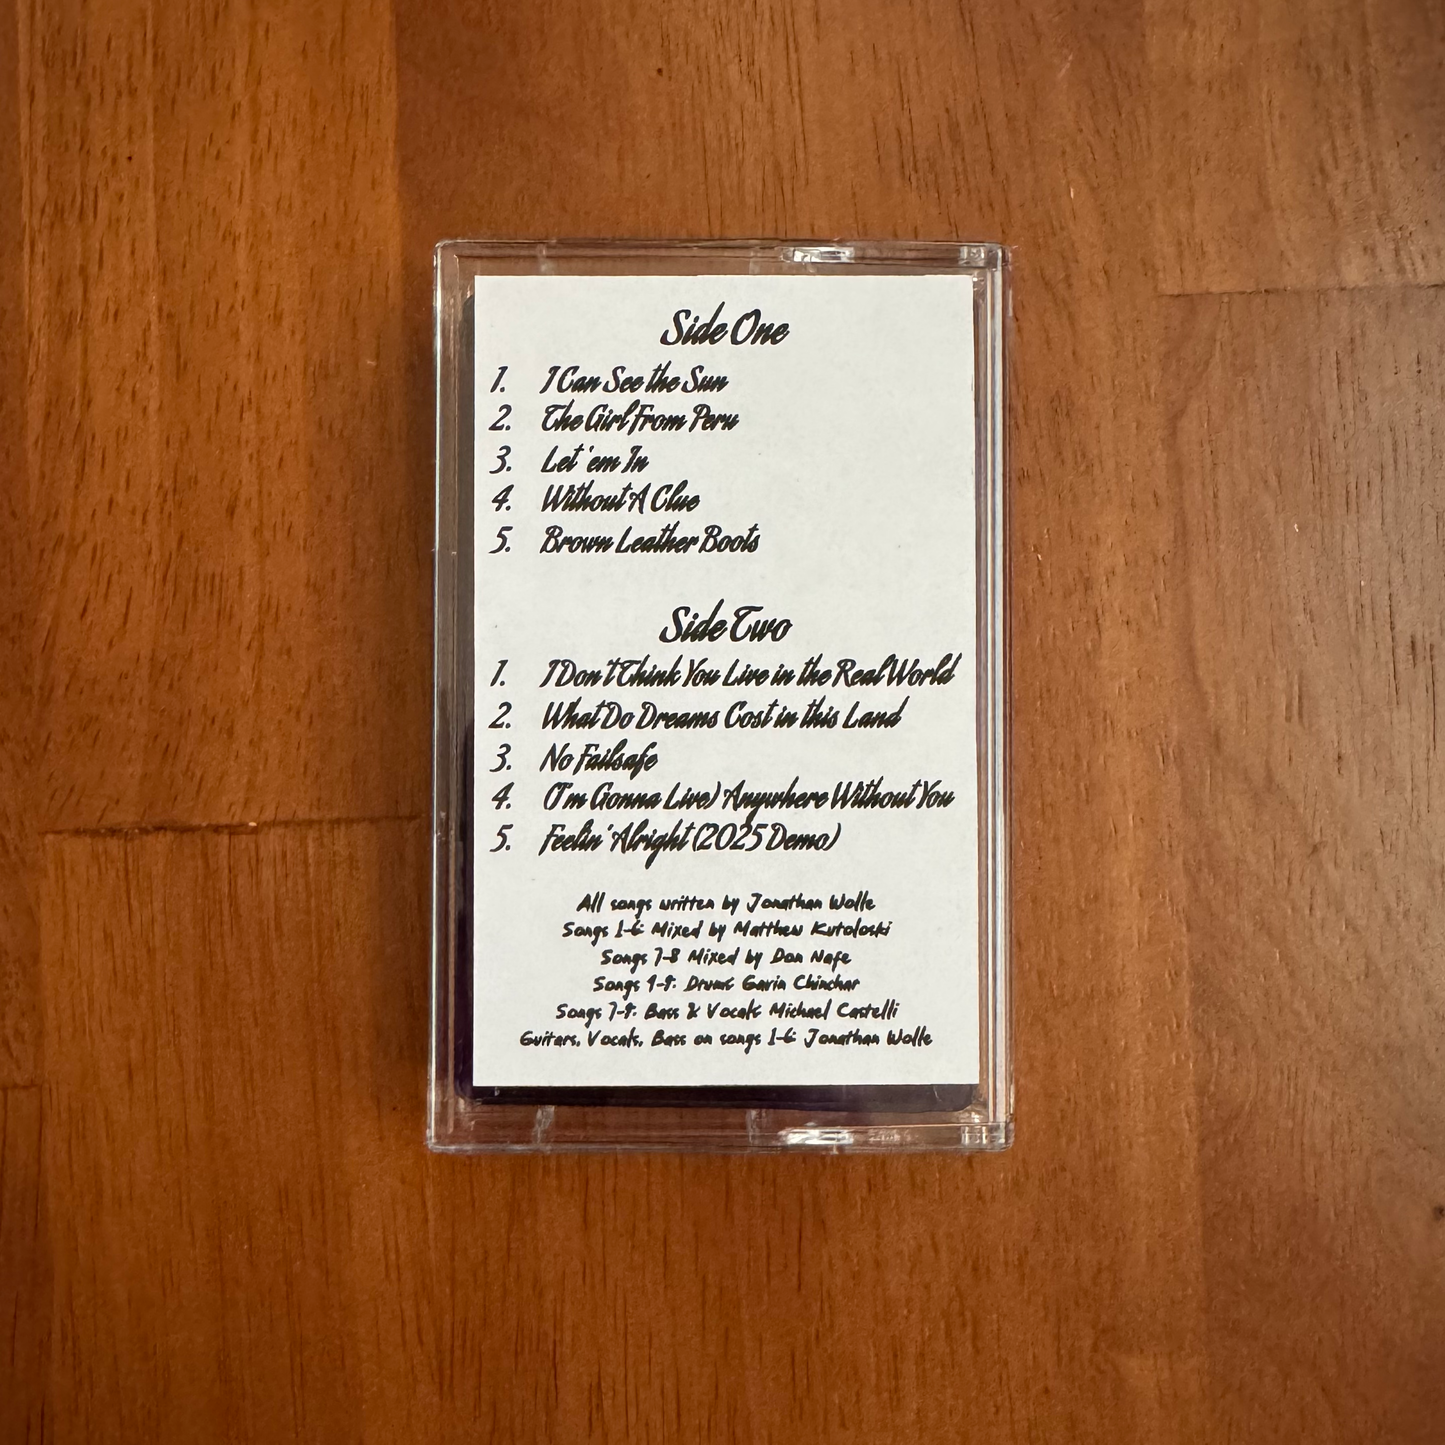 Side One
1. I Can See the Sun
2. The Girl From Peru
3. Let 'em In
4. Without A Clue
5. Brown Leather Boots
Side Two
1. I Don't Think You Live in the Real World
2. What Do Dreams Cost in this Land
3. No Failsafe
4. (I'm Gonna Live) Anywhere Without You
5. Feelin' Alright (2025 Demo)
All songs written by Jonathan Wolle
Songs 1-6: Mixed by Matthew Kutoloski
Songs 7-8 Mixed by Dan Nafe
Songs 9-9: Drums Gavin Chinchar
Songs 7-9: Bass & Vocals Michael Castelli
Guitars, Vocals, Bass on songs 1-6: Jonathan Wolle